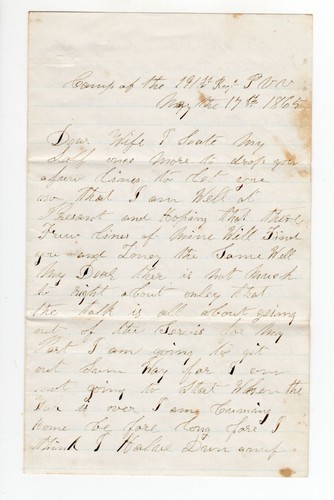 Camp of the 191st Regt P V V
May the 17th 1865
Dear Wife I Seate my
Self ones more to drop you
a few Lines to Let you
no that I am Well at
Presant and Hoping that these
Frew Lines of Mine Will Find
you and Loney the Same Well
My Dear ther is not much
to right about onley that
the talk is all about going
out of the Servis for My
Part I am going to git
out Sum Way for I am
not going to Stat When the
War is over I am Cuming
home be fore Long fore I
think I Halve Dun anuf